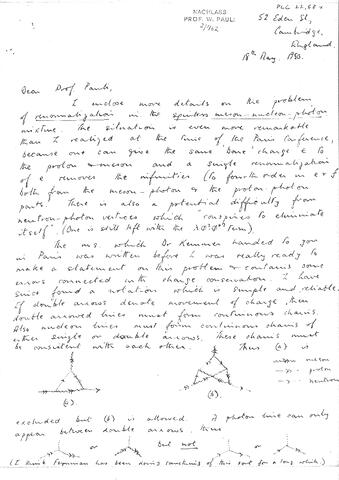 NACHLASS
PROF. W. PAULI
2/962
PLC 22,68
52 Eden St,
Cambridge,
England.
18th May. 1950.
Dear Prof Pauli,
I enclose more details on the problem
of renormalization in the spinless meson-nucleon-photon
mixture. The situation is even more remarkable
than I realized at the time of the Paris Conference,
because one can give the same 'bare' charge e to
the proton & meson and a single renormalization
of e removes the infinities (to fourth order in e & f
both from the meson-photon & the proton-photon
parts! There is also a potential difficulty from
neutron-photon vertices which "conspires to eliminate
itself". (One is still left with the term).
The ms. which Dr Kemmer handed to you
in Paris was written before I was really ready to
make a statement on this problem & contains some
errors connected with charge conservation. I have
since found a notation which is simple and reliable:
If double arrows denote movement of charge, then
double arrowed lines must form continuous chains.
Also nucleon lines must form continuous chains of
either single or double arrows. These chains must
be consistent with each other. Thus (a) is
meson
proton
neutron
(a).
(b).
excluded but (b) is allowed. A photon line can only
appear between double arrows, thus
or
or
but not
or
(I think Feynman has been doing something of this sort for a long while.)